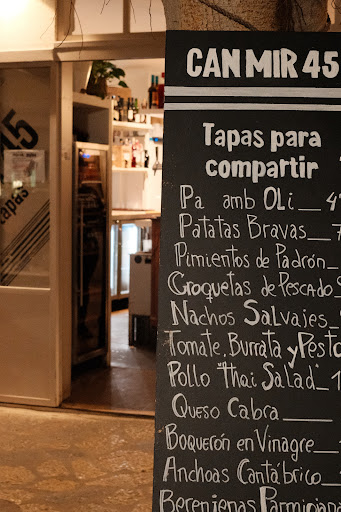 CAN MIR 45
Tapas para
compartir
Pa amb OLi__4
Patatas Bravas__7
Pimientos de Padrón_
Croquetas de Pescado
Nachos Salvajes_
Tomate, Burrata y Pesto
Pollo "Thai Salad"_1
Queso Cabra____
Boquerón en Vinagre__
Anchoas Cantábrico__
Berenjenas Parmigiana
45
tapas